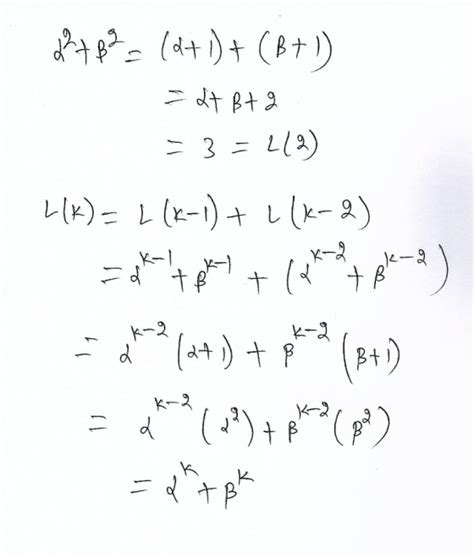 α²+β² = (α+1) + (β+1)
= α+β+2
= 3 = L(2)
L(k) = L(k-1) + L(k-2)
= α^{k-1} + β^{k-1} + (α^{k-2} + β^{k-2})
= α^{k-2} (α+1) + β^{k-2} (β+1)
= α^{k-2} (α²) + β^{k-2} (β²)
= α^k + β^k